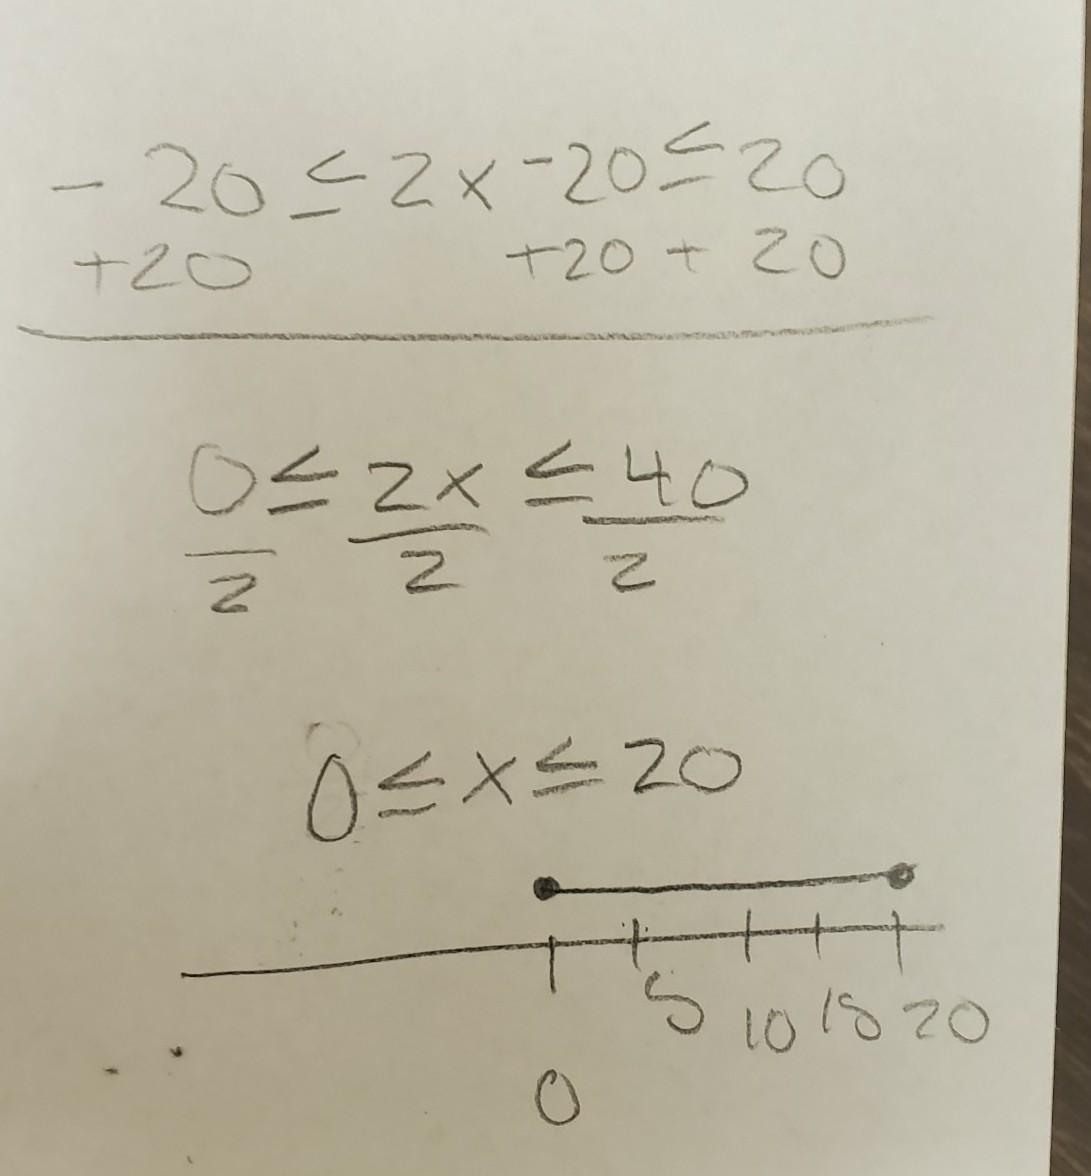 - 20 ≤ 2x -20 ≤ 20
+20 +20 + 20
0 ≤ 2x ≤ 40
2 2 2
0 ≤ x ≤ 20
5 10 15 20
0